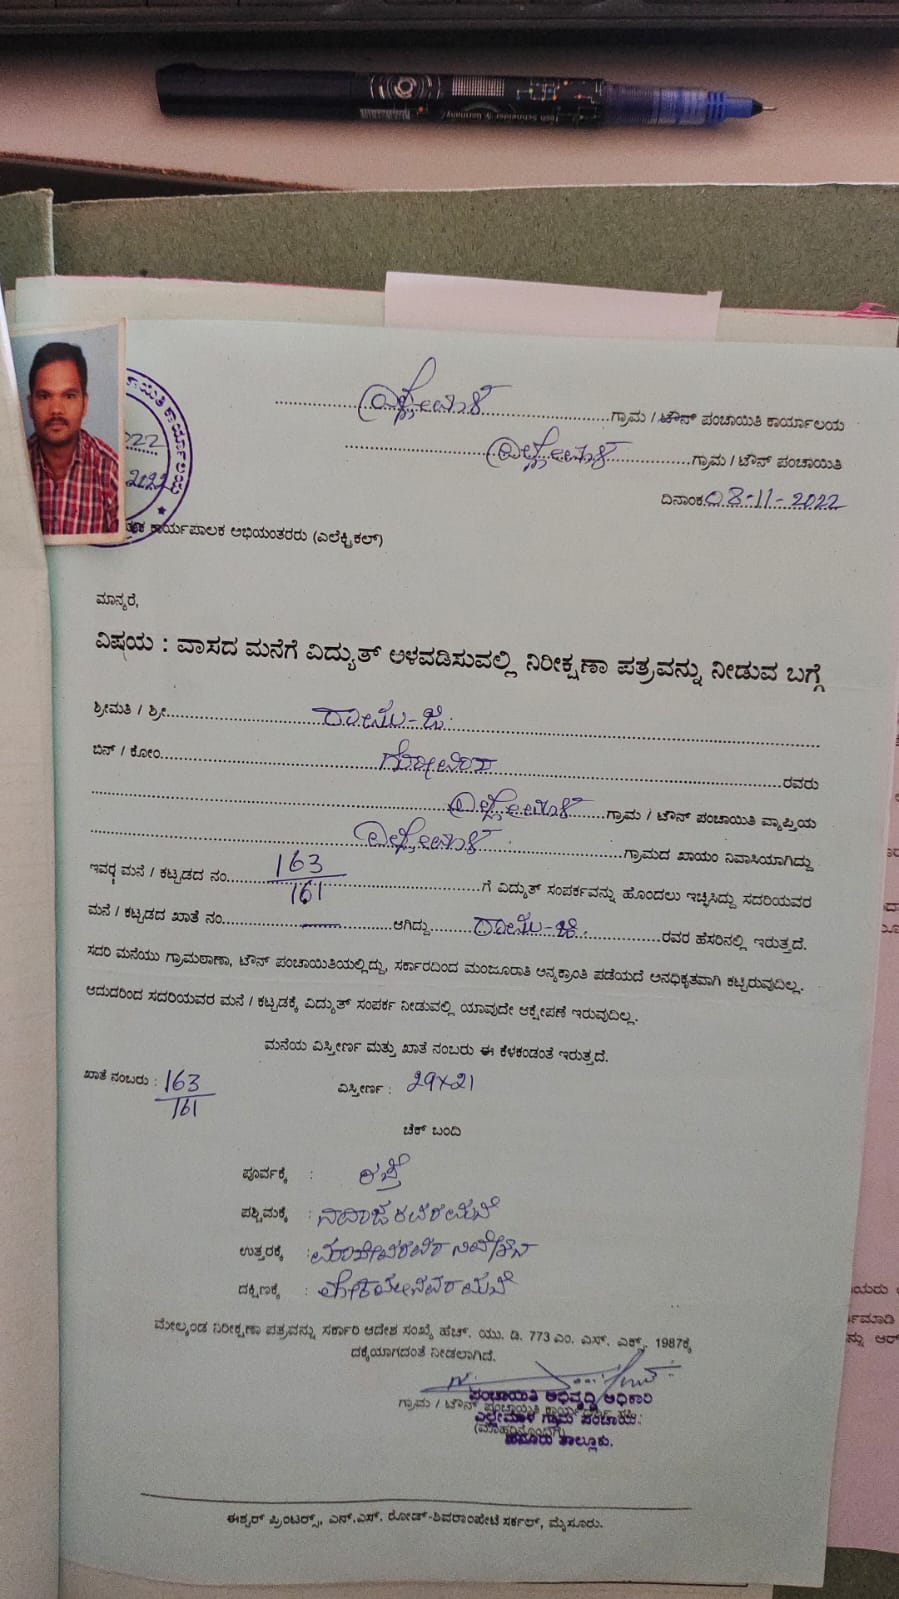 ಎಲ್ಲೇಮಾಳ ಗ್ರಾಮ / ಟೌನ್ ಪಂಚಾಯಿತಿ ಕಾರ್ಯಾಲಯ
ಎಲ್ಲೇಮಾಳ ಗ್ರಾಮ / ಟೌನ್ ಪಂಚಾಯಿತಿ
ದಿನಾಂಕ 08-11-2022
ಕಾರ್ಯಾಲಯ
2022
ಕಾರ್ಯಪಾಲಕ ಅಭಿಯಂತರರು (ಎಲೆಕ್ಟ್ರಿಕಲ್)
ಮಾನ್ಯರೆ,
ವಿಷಯ : ವಾಸದ ಮನೆಗೆ ವಿದ್ಯುತ್ ಅಳವಡಿಸುವಲ್ಲಿ ನಿರೀಕ್ಷಣಾ ಪತ್ರವನ್ನು ನೀಡುವ ಬಗ್ಗೆ
ಶ್ರೀಮತಿ / ಶ್ರೀ ರಾಮು-ಜಿ.
ಬಿನ್ / ಕೋಂ ಗೋವಿಂದ ರವರು
ಎಲ್ಲೇಮಾಳ ಗ್ರಾಮ / ಟೌನ್ ಪಂಚಾಯಿತಿ ವ್ಯಾಪ್ತಿಯ
ಎಲ್ಲೇಮಾಳ ಗ್ರಾಮದ ಖಾಯಂ ನಿವಾಸಿಯಾಗಿದ್ದು
ಇವರ ಮನೆ / ಕಟ್ಟಡದ ನಂ. 163/161 ಗೆ ವಿದ್ಯುತ್ ಸಂಪರ್ಕವನ್ನು ಹೊಂದಲು ಇಚ್ಛಿಸಿದ್ದು ಸದರಿಯವರ
ಮನೆ / ಕಟ್ಟಡದ ಖಾತೆ ನಂ. — ಆಗಿದ್ದು ರಾಮು-ಜಿ. ರವರ ಹೆಸರಿನಲ್ಲಿ ಇರುತ್ತದೆ.
ಸದರಿ ಮನೆಯು ಗ್ರಾಮಠಾಣಾ, ಟೌನ್ ಪಂಚಾಯಿತಿಯಲ್ಲಿದ್ದು, ಸರ್ಕಾರದಿಂದ ಮಂಜೂರಾತಿ ಅನ್ಯಕ್ರಾಂತಿ ಪಡೆಯದೆ ಅನಧಿಕೃತವಾಗಿ ಕಟ್ಟಿರುವುದಿಲ್ಲ.
ಆದುದರಿಂದ ಸದರಿಯವರ ಮನೆ / ಕಟ್ಟಡಕ್ಕೆ ವಿದ್ಯುತ್ ಸಂಪರ್ಕ ನೀಡುವಲ್ಲಿ ಯಾವುದೇ ಆಕ್ಷೇಪಣೆ ಇರುವುದಿಲ್ಲ.
ಮನೆಯ ವಿಸ್ತೀರ್ಣ ಮತ್ತು ಖಾತೆ ನಂಬರು ಈ ಕೆಳಕಂಡಂತೆ ಇರುತ್ತದೆ.
ಖಾತೆ ನಂಬರು : 163/161 ವಿಸ್ತೀರ್ಣ : 29x21
ಚೆಕ್ ಬಂದಿ
ಪೂರ್ವಕ್ಕೆ : ರಸ್ತೆ
ಪಶ್ಚಿಮಕ್ಕೆ : ರವರ ಮನೆ
ಉತ್ತರಕ್ಕೆ : ನಿವೇಶನ
ದಕ್ಷಿಣಕ್ಕೆ : ಮನೆ
ಮೇಲ್ಕಂಡ ನಿರೀಕ್ಷಣಾ ಪತ್ರವನ್ನು ಸರ್ಕಾರಿ ಆದೇಶ ಸಂಖ್ಯೆ ಹೆಚ್. ಯು. ಡಿ. 773 ಎಂ. ಎಸ್. ಎಕ್ಸ್. 1987ಕ್ಕೆ
ದಕ್ಕೆಯಾಗದಂತೆ ನೀಡಲಾಗಿದೆ.
ಪಂಚಾಯಿತಿ ಅಭಿವೃದ್ಧಿ ಅಧಿಕಾರಿ
ಗ್ರಾಮ / ಟೌನ್ ಪಂಚಾಯಿತಿ
ಎಲ್ಲೇಮಾಳ ಗ್ರಾಮ ಪಂಚಾಯಿತಿ
(ಮೊಹರಿನೊಂದಿಗೆ)
ಹನೂರು ತಾಲ್ಲೂಕು.
ಈಶ್ವರ್ ಪ್ರಿಂಟರ್ಸ್, ಎನ್.ಎಸ್. ರೋಡ್-ಶಿವರಾಂಪೇಟೆ ಸರ್ಕಲ್, ಮೈಸೂರು.